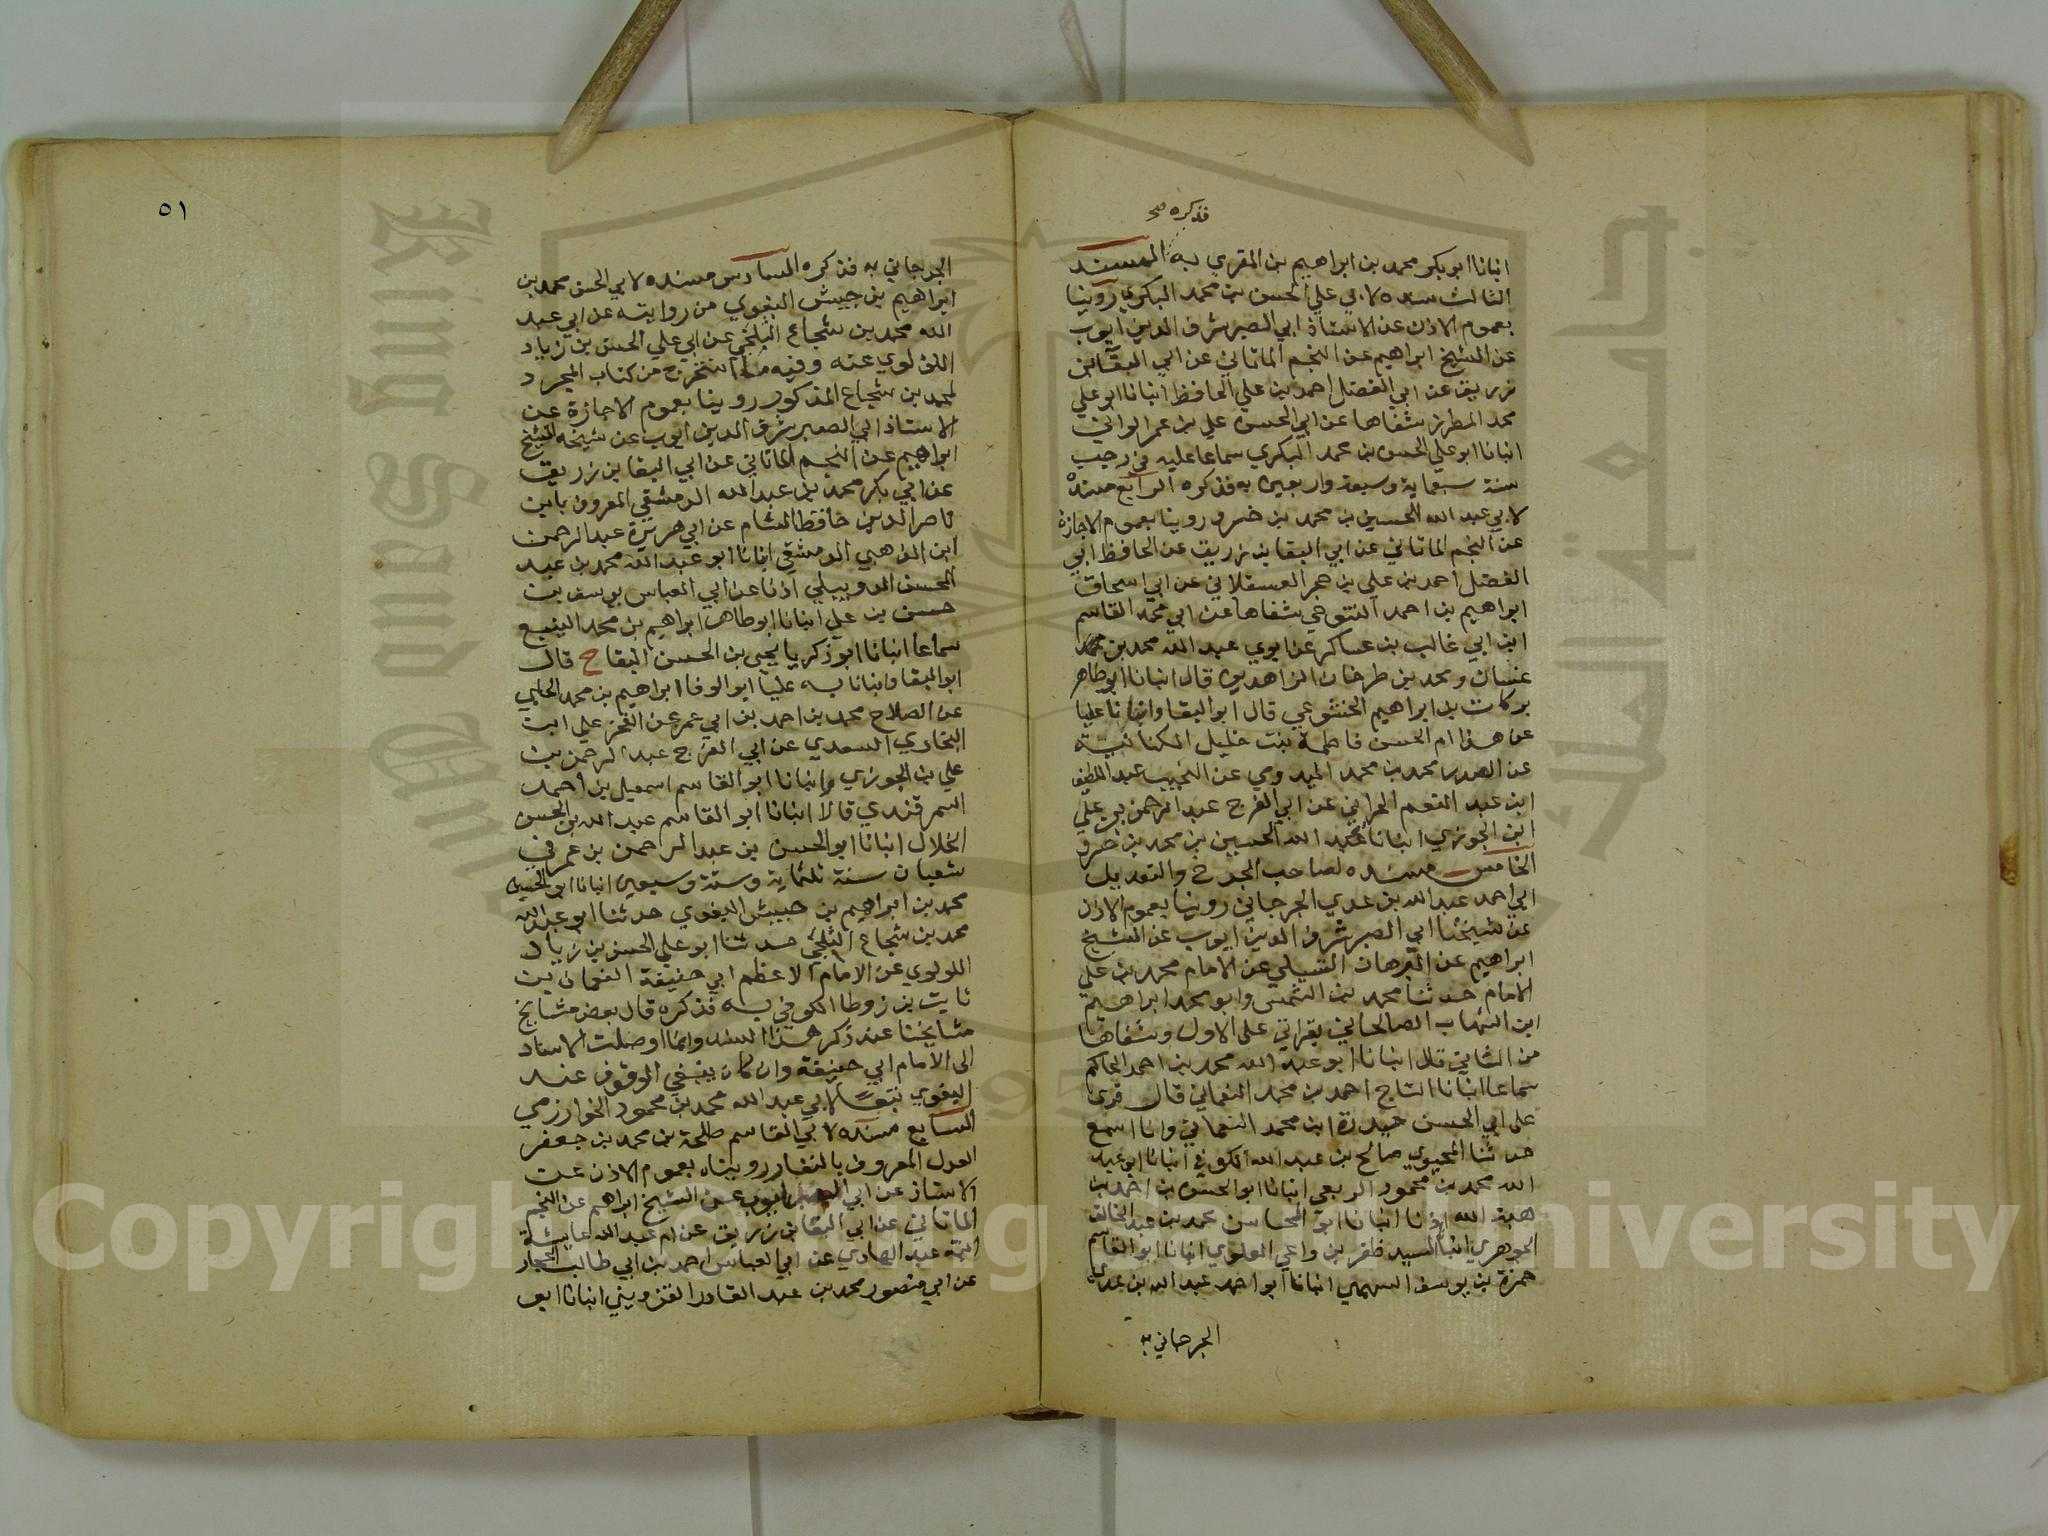 فذكره صح
انبانا ابو بكر محمد بن ابراهيم بن المقري به المسند
الثالث مسنده لابي علي الحسن بن محمد البكري روينا
بعموم الاذن عن الاستاذ ابي الصبر شرف الدين ايوب
عن الشيخ ابراهيم عن النجم الماتاني عن ابي البقا بن
زريق عن ابي الفضل احمد بن علي الحافظ انبانا ابو علي
محمد المطرز شفاها عن ابي الحسن علي بن عمر الواني
انبانا ابو علي الحسن بن محمد البكري سماعا عليه في رجب
سنة سبعماية وسبعة واربعين به فذكره الرابع مسنده
لابي عبد الله الحسين بن محمد بن خسرو روينا بعموم الاجازة
عن النجم الماتاني عن ابي البقا بن زريق عن الحافظ ابي
الفضل احمد بن علي بن حجر العسقلاني عن ابي اسحاق
ابراهيم بن احمد التنوخي شفاها عن ابي محمد القاسم
ابن ابي غالب بن عساكر عن ابوي عبد الله محمد بن محمد
غسان ومحمد بن طرخان الزاهدين قال انبانا ابو طاهر
بركات بن ابراهيم الخشوعي قال ابو البقا وانبانا عليا
عن هذا ام الحسن فاطمة بنت خليل الكنانية
عن الصدر محمد بن محمد الميدومي عن النجيب عبد اللطيف
ابن عبد المنعم الحراني عن ابي الفرج عبد الرحمن بن علي
ابن الجوزي انبانا محمد الله الحسين بن محمد بن خسرو
الخامس مسنده لصاحب الجرح والتعديل
ابي احمد عبد الله بن عدي الجرجاني روينا بعموم الاذن
عن شيخنا ابي الصبر شرف الدين ايوب عن الشيخ
ابراهيم عن البرهان الشبلي عن الامام محمد بن علي
الامام حدثنا محمد بن الشمس وابو محمد ابراهيم
ابن الشهاب الصالحاني بقراتي على الاول وشفاها
من الثاني قال انبانا ابو عبد الله محمد بن احمد الحاكم
سماعا انبانا التاج احمد بن محمد النعماني قال قرئ
على ابي الحسن حيدرة ابن محمد النعماني وانا اسمع
حدثنا المحيوي صالح بن عبد الله الكوفي انبانا ابو عبد
الله محمد بن محمود الربعي انبانا ابو الحسن بن احمد بن
هبة الله اذنا انبانا ابو المحاسن محمد بن عبد الخالق
الجوهري انبا السيد ظفر بن داعي العلوي انبانا ابو القاسم
حمزة بن يوسف السهمي انبانا ابو احمد عبد الله بن عدي
الجرجاني به
٥١
الجرجاني به فذكره السادس مسنده لابي الحسن محمد بن
ابراهيم بن حبيش البغوي من روايته عن ابي عبد
الله محمد بن شجاع البلخي عن ابي علي الحسن بن زياد
اللؤلوي عنه وفيه ما استخرج من كتاب المجرد
لمحمد بن شجاع المذكور روينا بعموم الاجازة عن
الاستاذ ابي الصبر شرف الدين ايوب عن شيخه الشيخ
ابراهيم عن النجم الماتاني عن ابي البقا بن زريق
عن ابي بكر محمد بن عبد الله الدمشقي المعروف بابن
ناصر الدين حافظ الشام عن ابي هريرة عبد الرحمن
ابن الذهبي الدمشقي انبانا ابو عبد الله محمد بن عبد
المحسن الدويبلي اذنا عن ابي العباس يوسف بن
حسن بن علي انبانا ابو طاهر ابراهيم بن محمد البنيع
سماعا انبانا ابو زكريا يحيى بن الحسن البقا ح قال
ابو البقا وانبانا به عليا ابو الوفا ابراهيم بن محمد الحلبي
عن الصلاح محمد بن احمد بن ابي عمر عن الفخر علي ابن
البخاري السعدي عن ابي الفرج عبد الرحمن بن
علي بن الجوزي وانبانا ابو القاسم اسمعيل بن احمد
السمرقندي قالا انبانا ابو القاسم عبد الله بن الحسن
الخلال انبانا ابو الحسن بن عبد الرحمن بن عمر في
شعبان سنة ثلثماية وستة وسبعين انبانا ابو الحسن
محمد بن ابراهيم بن حبيش البغوي حدثنا ابو عبد الله
محمد بن شجاع الثلجي حدثنا ابو علي الحسن بن زياد
اللولوي عن الامام الاعظم ابي حنيفة النعمان بن
ثابت بن زوطا الكوفي به فذكره قال بعض مشايخ
مشايخنا عند ذكر هذا السند وانما اوصلت الاسناد
الى الامام ابي حنيفة وان كان ينبغي الوقوف عند
البغوي تبعا لابي عبد الله محمد بن محمود الخوارزمي
السابع مسنده لابي القاسم طلحة بن محمد بن جعفر
العدل المعروف بالنفار رويناه بعموم الاذن عن
الاستاذ عن ابي الصبر ايوب عن الشيخ ابراهيم عن النجم
الماتاني عن ابي البقا بن زريق عن ام عبد الله عايشة
ابنة عبد الهادي عن ابي العباس احمد بن ابي طالب الحجار
عن ابي منصور محمد بن عبد القادر القزويني انبانا ابو
Copyright © King Saud University
جامعة الملك سعود
King Saud University
1957